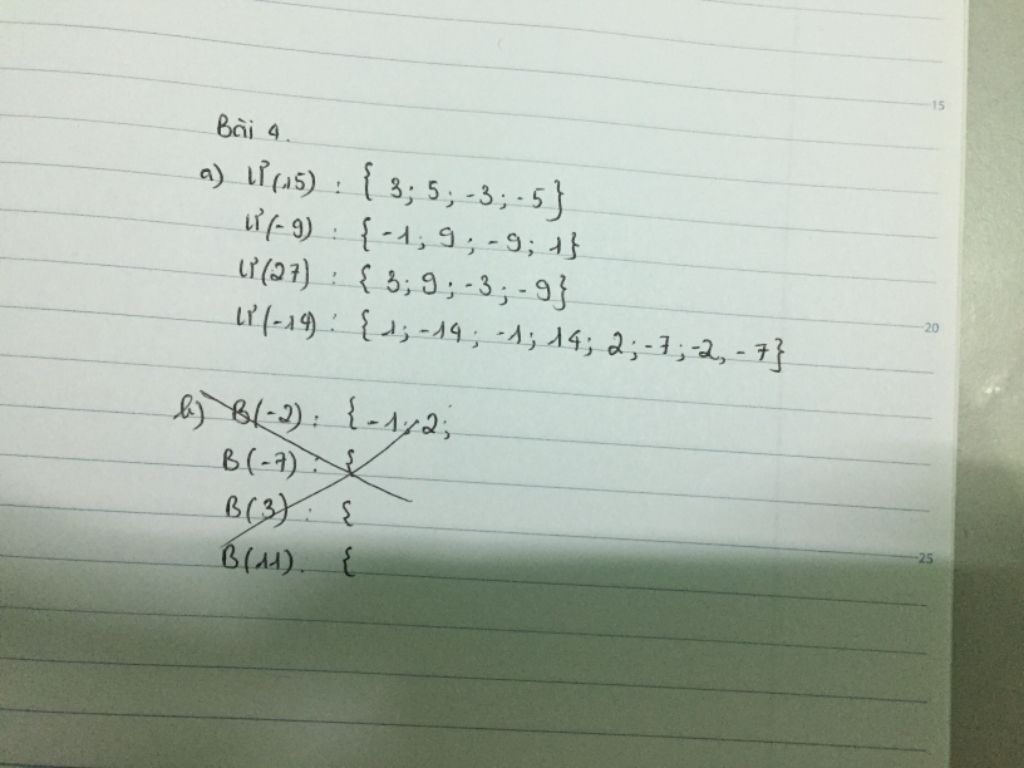 15
Bài 4.
a) Ư(15) : { 3; 5; -3; -5}
Ư(-9) : { -1; 9; -9; 1}
Ư(27) : { 3; 9; -3; -9}
Ư(-14) : { 1; -14; -1; 14; 2; -7; -2, -7}
20
b) B(-2) : { -1; 2;
B(-7) : {
B(3) : {
B(11). {
25